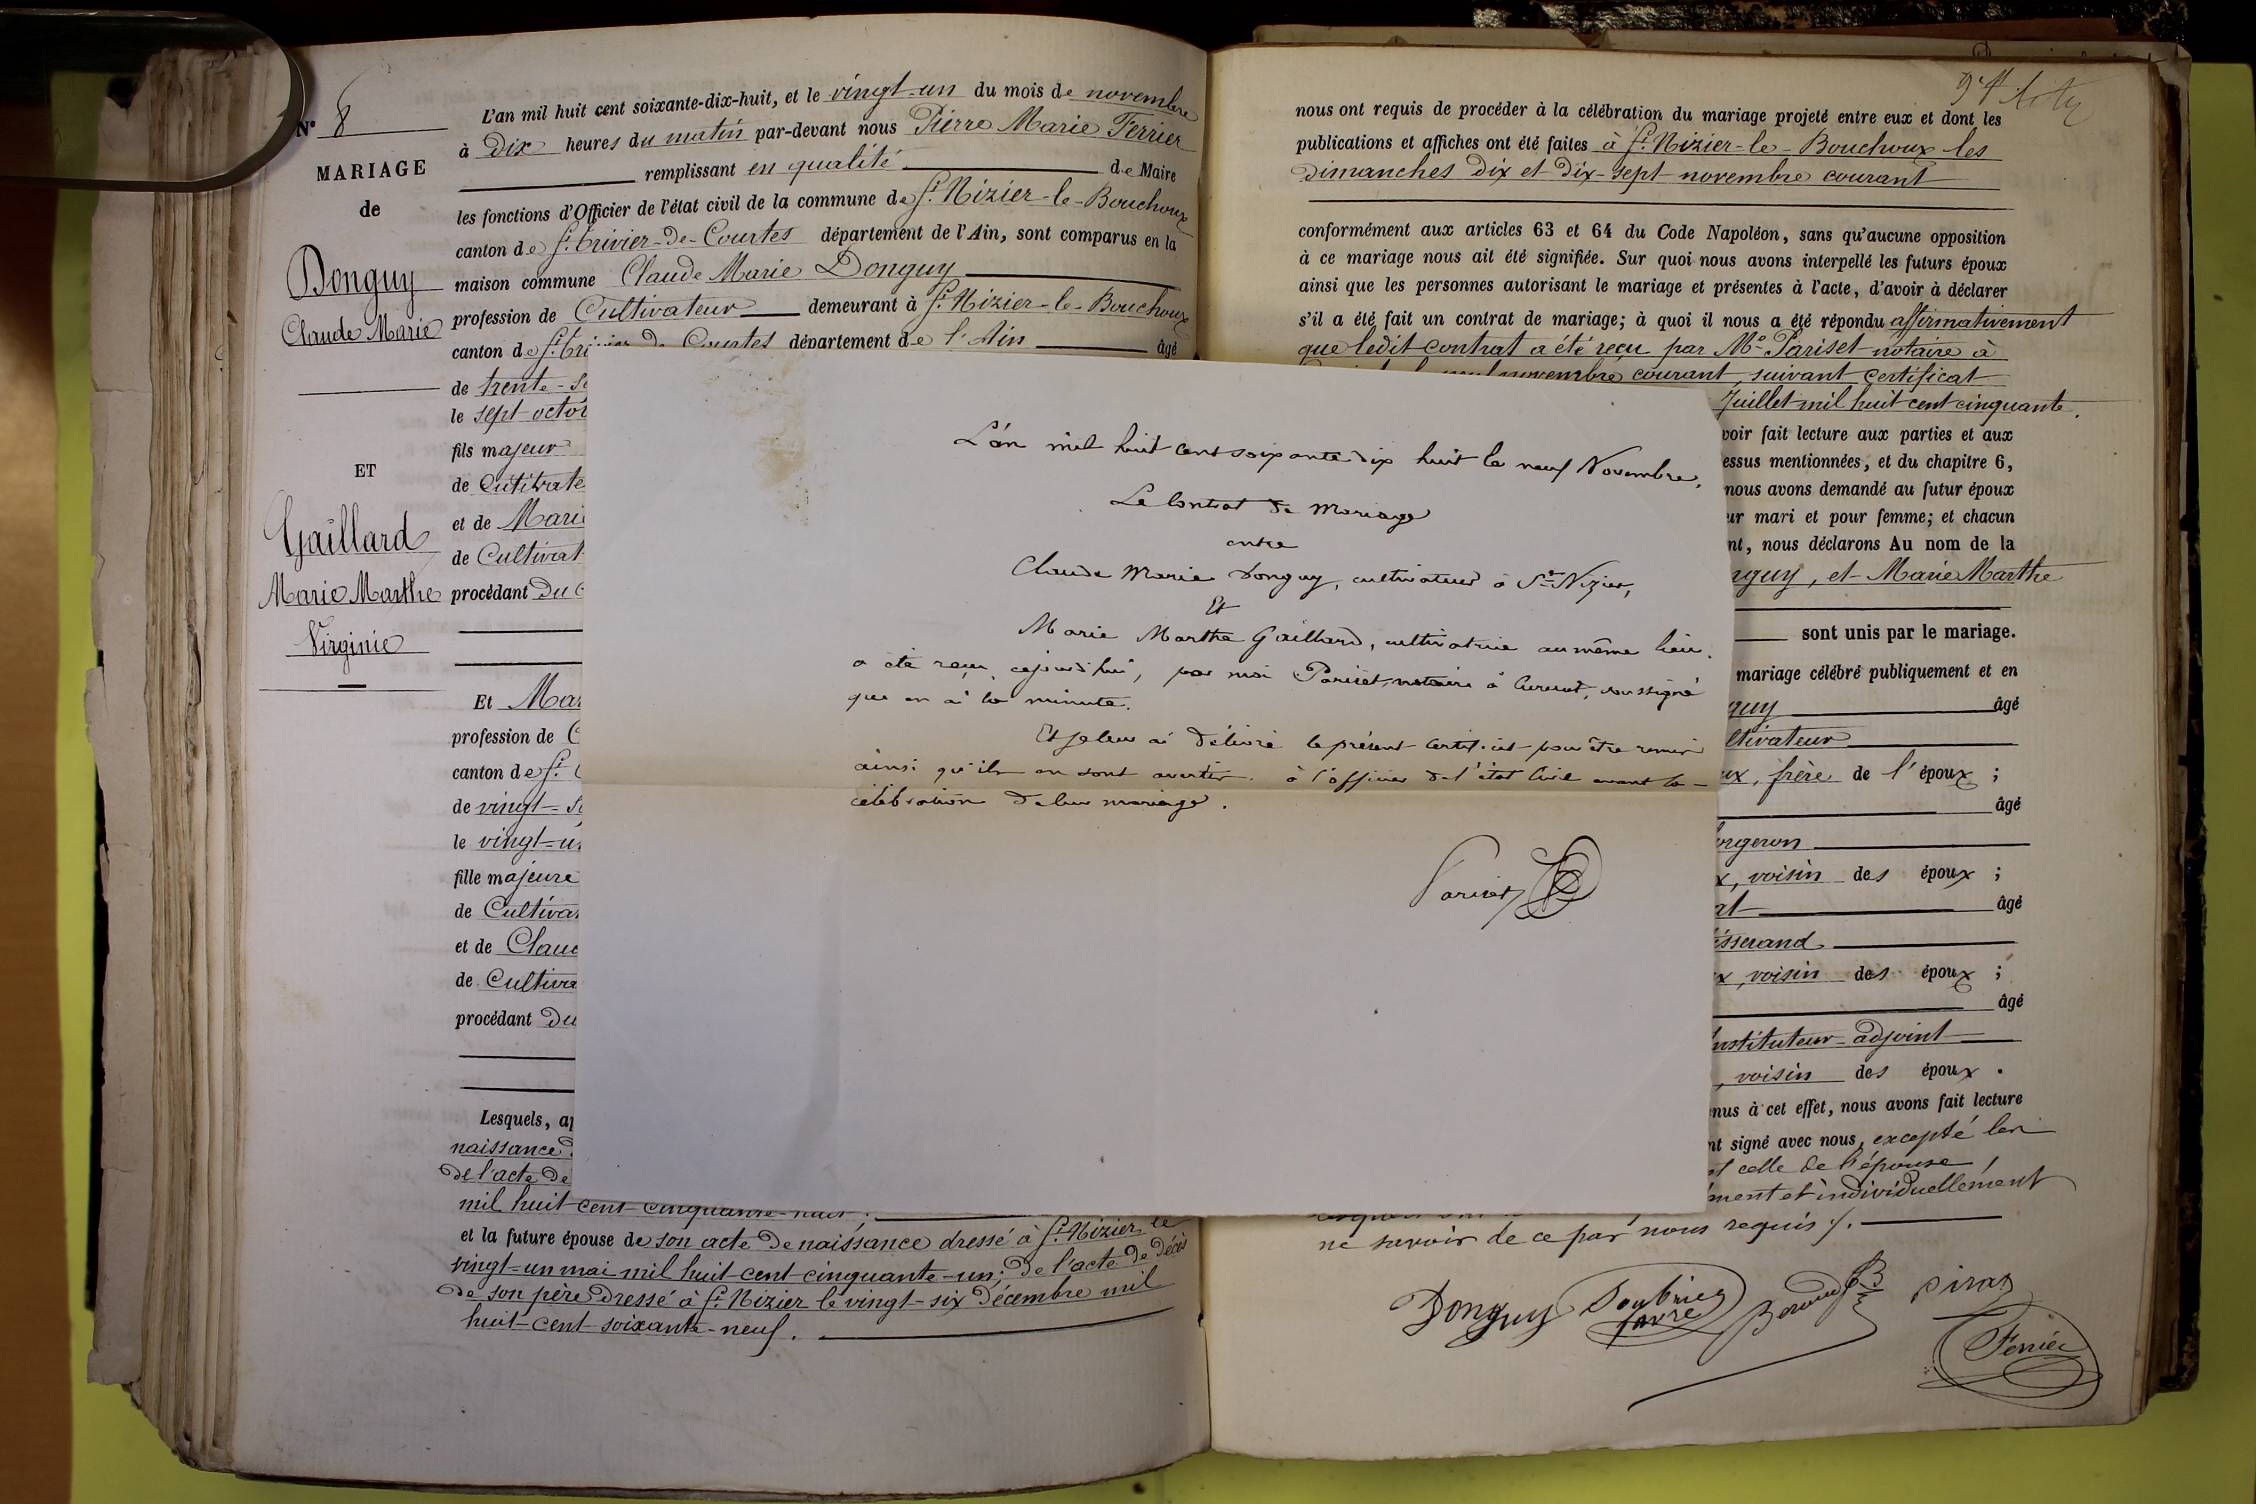 N° 8
MARIAGE
de
Donguy
Claude Marie
ET
Gaillard
Marie Marthe
Virginie
L'an mil huit cent soixante-dix-huit, et le vingt-un du mois de novembre
à Dix heures du matin par-devant nous Pierre Marie Ferrier
remplissant en qualité de Maire
les fonctions d'Officier de l'état civil de la commune de St. Nizier-le-Bouchoux
canton de St. Trivier-de-Courtes département de l'Ain, sont comparus en la
maison commune Claude Marie Donguy
profession de Cultivateur demeurant à St. Nizier-le-Bouchoux
canton de St. Tri de Courtes département de l'Ain âgé
de trente-
le sept
fils majeur
de
et de Mari
de Cultivat
procédant Du
Et Mar
profession de C
canton de St.
de vingt-
le vingt-
fille majeure
de Cultiva
et de Clau
de Cultiva
procédant Du
Lesquels, a
naissance
de l'acte de
mil huit cent cinquante-huit ;
et la future épouse de son acte de naissance dressé à St. Nizier le
vingt-un mai mil huit-cent-cinquante-un; de l'acte de décès
de son père dressé à St. Nizier le vingt-six décembre mil
huit-cent-soixante-neuf.
L'an mil huit cent soixante dix huit le neuf Novembre,
Le Contrat de Mariage
entre
Claude Marie Donguy, cultivateur à St. Nizier,
Et
Marie Marthe Gaillard, cultivatrice au même lieu.
a été reçu cejourd'hui, par moi Pariset, notaire à Curciat, soussigné
qui en ai la minute.
Et je leur ai délivré le présent certificat pour être remis
ainsi qu'ils en sont avertis à l'officier de l'état civil avant la
célébration de leur mariage.
Pariset
nous ont requis de procéder à la célébration du mariage projeté entre eux et dont les
publications et affiches ont été faites à St. Nizier-le-Bouchoux les
dimanches Dix et Dix-sept novembre courant
conformément aux articles 63 et 64 du Code Napoléon, sans qu'aucune opposition
à ce mariage nous ait été signifiée. Sur quoi nous avons interpellé les futurs époux
ainsi que les personnes autorisant le mariage et présentes à l'acte, d'avoir à déclarer
s'il a été fait un contrat de mariage; à quoi il nous a été répondu affirmativement
que ledit contrat a été reçu par Me. Pariset notaire à
novembre courant, suivant certificat
Juillet mil huit cent cinquante.
voir fait lecture aux parties et aux
essus mentionnées, et du chapitre 6,
nous avons demandé au futur époux
ur mari et pour femme; et chacun
nt, nous déclarons Au nom de la
nguy, et Marie Marthe
sont unis par le mariage.
mariage célébré publiquement et en
guy âgé
ltivateur
ux, frère de l'époux ;
âgé
orgeron
x, voisin des époux ;
at âgé
isserand
x, voisin des époux ;
âgé
instituteur-adjoint
, voisin des époux.
nus à cet effet, nous avons fait lecture
nt signé avec nous, excepté les
et celle de l'épouse,
ment et individuellement
ne savoir de ce par nous requis ./.
Donguy
Ferrier